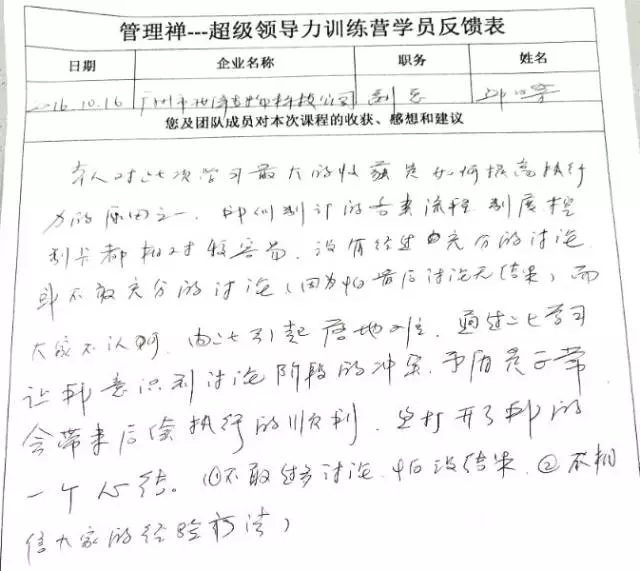 管理禅---超级领导力训练营学员反馈表
日期 企业名称 职务 姓名
2016.10.16 广州市 科技公司 副总
您及团队成员对本次课程的收获、感想和建议
本人对此次学习最大的收获是如何提高执行
力的原因之一。我们制订的 流程、制度
都相对较容易，没有经过充分的讨论，
或不敢充分的讨论（因为怕最后讨论无结果）而
大家不认可，由此引起落地难。通过此学习
让我意识到讨论阶段的冲突、矛盾是正常
会带来后续执行的顺利，这打开了我的
一个心结。①不敢过多讨论，怕没结果。②不相
信大家的经验 ）